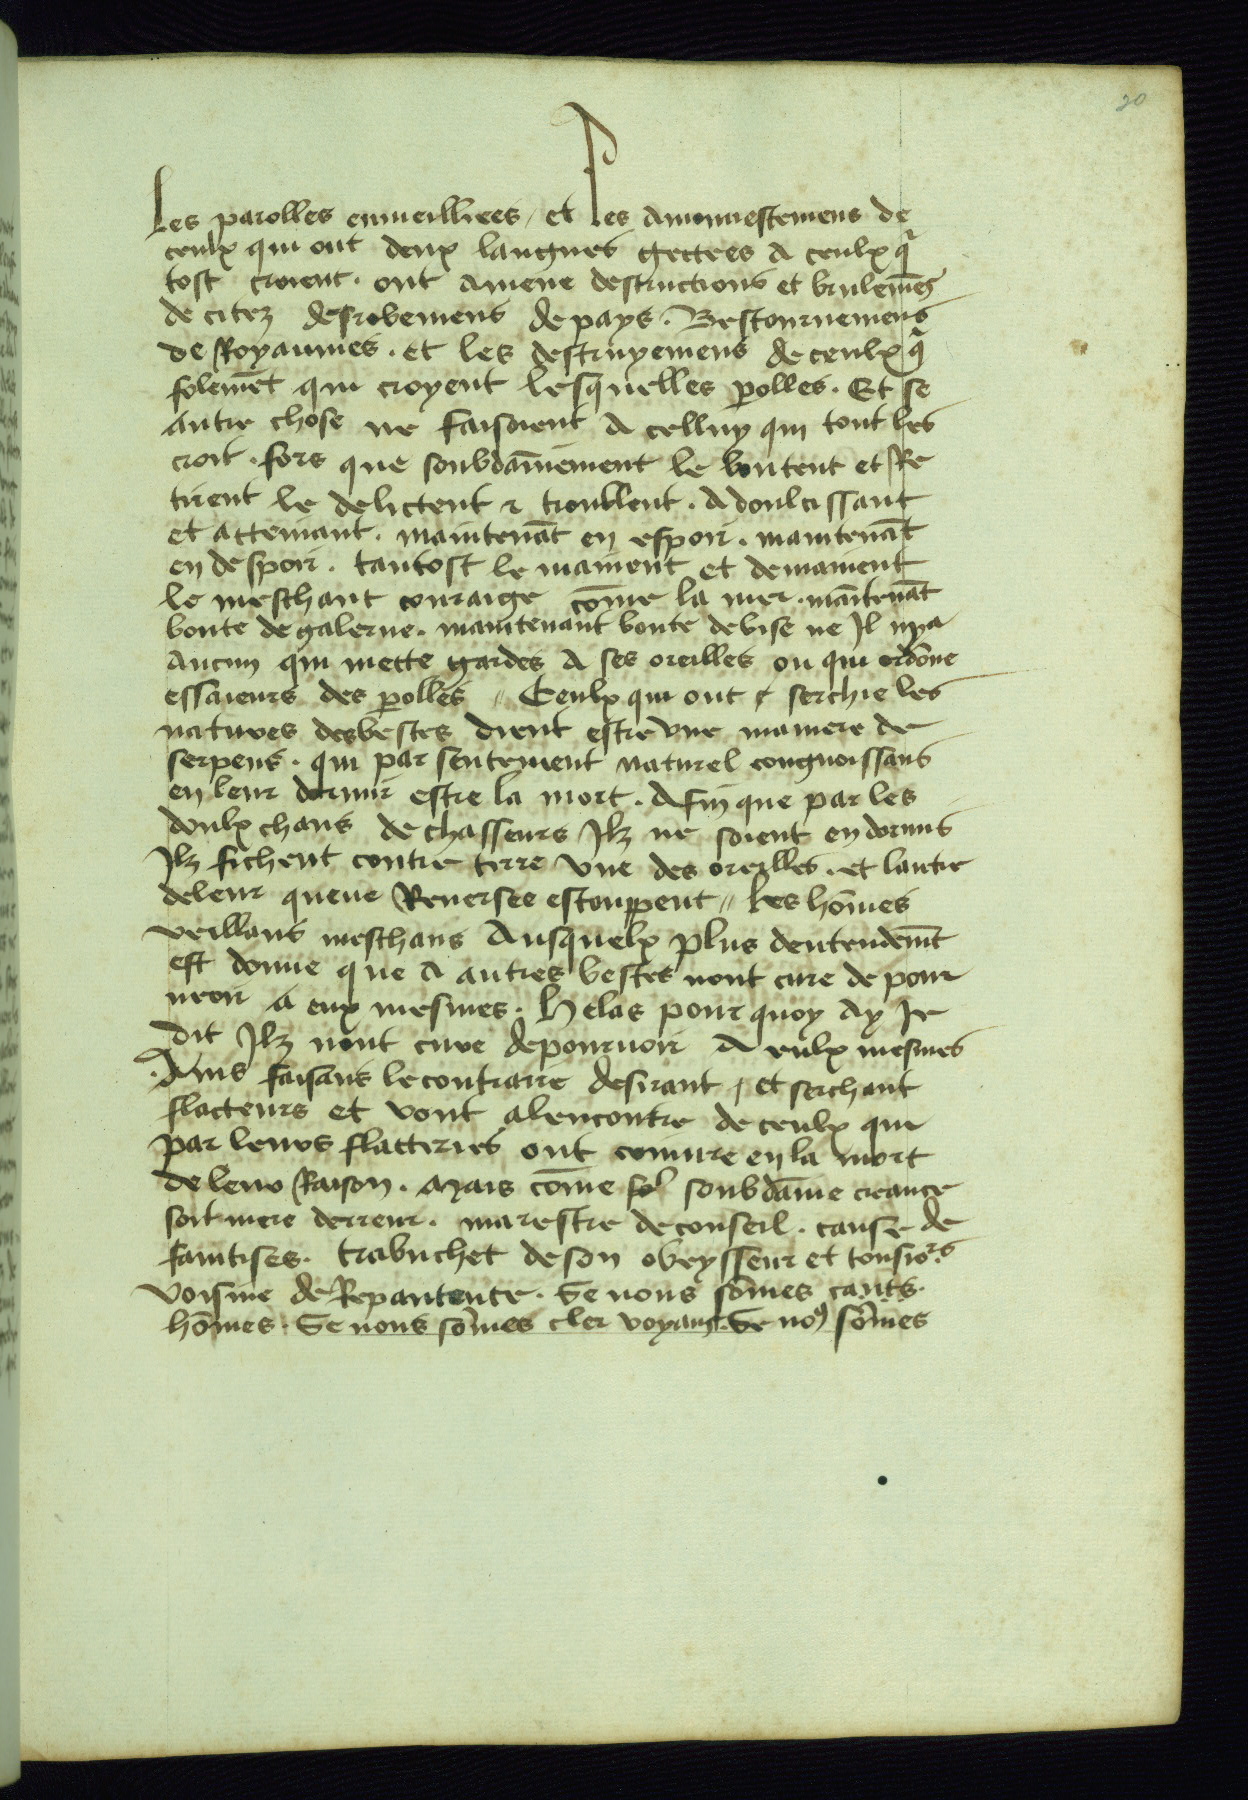 20
Les parolles enmeilliees / et les amonnestemens de
ceulx qui ont deux langues gectees a ceulx q̄
tost croient . ont amene destructions et brulemēs
de citez desrobemens de pays . Bestournemens
de Royaumes . et les destruyemens de ceulx q̄
folemēt qui croyent lesquelles polles . Et se
autre chose ne faisoient a celluy qui tout les
croit . fors que soubdainnement le boutent et Re
tirent le delictent & troublent . Adoulcissant
et attenant . maintenāt en espoir . maintenāt
en despoir . tantost le mainent et demainent
le meschant couraige cōme la mer . maītenāt
boute de galerne . maintenant boute de bise ne Il nya
Aucun qui mette gardes a ses oreilles ou qui ordōne
essaieurs des polles // Ceulx qui ont serchie les
natures des bestes dient estre vne maniere de
serpens . qui par sentement naturel congnoissans
en leur dormir estre la mort . Afin que par les
doulx chans de chasseurs Ilz ne soient endormis
Ilz fichent contre terre vne des oreilles . et lautre
de leur queue Reuersee estouppent // Les hōmes
veillans meschans Ausquelx plus dentendemēt
est donne que a autres bestes nont cure de pour
ueoir a eux mesmes . Helas pour quoy ay Je
dit Ilz nont cure de pourueoir A eulx mesmes
Ains faisans le contraire desirant / et serchant
flacteurs et vont alencontre de ceulx qui
par leurs flatteries ont coniure en la mort
de leur Raison . Mais cōme soubdainne creance
soit mere derreur . marestre de conseil . cause de
faintises . trabuchet de son obeysseur et tousiors
voisine de Repantence . Se nous sōmes cauts
hōmes . Se nous sōmes cler voyans . Se noꝰ sōmes